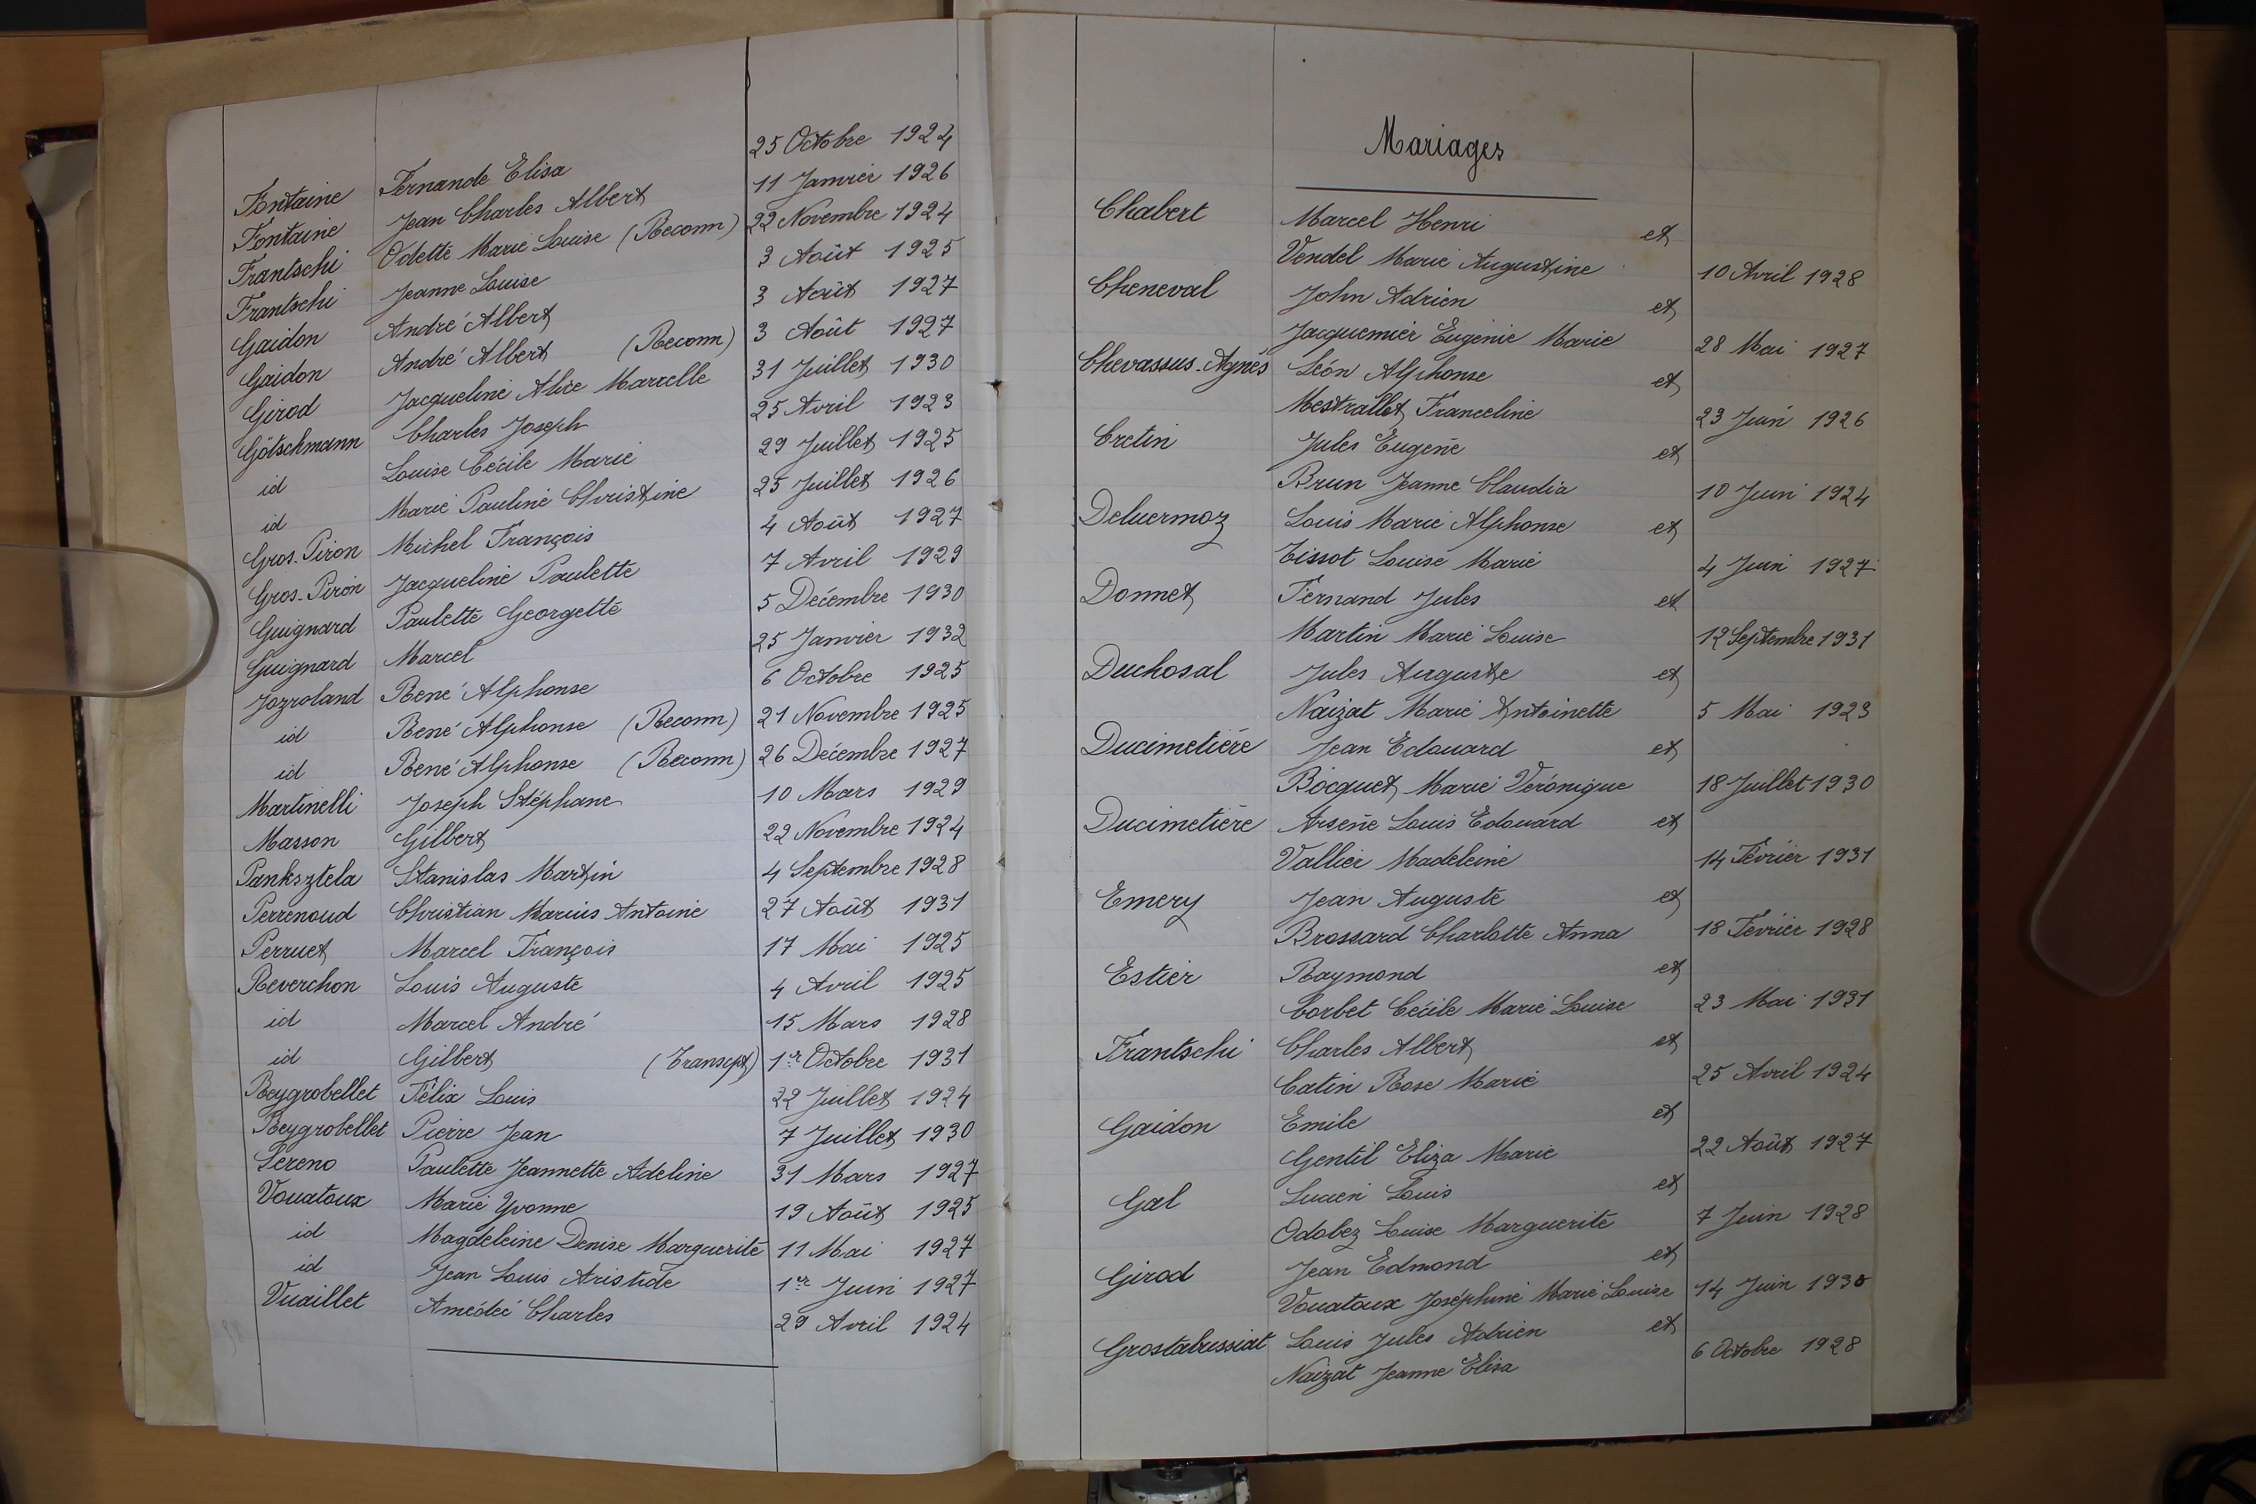 Fontaine Fernande Elisa 25 Octobre 1924
Fontaine Jean Charles Albert 11 Janvier 1926
Frantschi Odette Marie Louise (Reconn) 22 Novembre 1924
Frantschi Jeanne Louise 3 Août 1925
Gaidon André Albert 3 Août 1927
Gaidon André Albert (Reconn) 3 Août 1927
Girod Jacqueline Alice Marcelle 31 Juillet 1930
Götschmann Charles Joseph 25 Avril 1923
id Louise Cécile Marie 29 Juillet 1925
id Marie Pauline Christine 25 Juillet 1926
Gros-Piron Michel François 4 Août 1927
Gros-Piron Jacqueline Paulette 7 Avril 1929
Guignard Paulette Georgette 5 Décembre 1930
Guignard Marcel 25 Janvier 1932
Jozroland René Alphonse 6 Octobre 1925
id René Alphonse (Reconn) 21 Novembre 1925
id René Alphonse (Reconn) 26 Décembre 1927
Martinelli Joseph Stéphane 10 Mars 1929
Masson Gilbert 22 Novembre 1924
Panksztela Stanislas Martin 4 Septembre 1928
Perrenoud Christian Marius Antoine 27 Août 1931
Perruet Marcel François 17 Mai 1925
Reverchon Louis Auguste 4 Avril 1925
id Marcel André 15 Mars 1928
id Gilbert (Transcpt) 1er Octobre 1931
Reygrobellet Félix Louis 22 Juillet 1924
Reygrobellet Pierre Jean 7 Juillet 1930
Sereno Paulette Jeannette Adeline 31 Mars 1927
Vouatoux Marie Yvonne 19 Août 1925
id Magdeleine Denise Marguerite 11 Mai 1927
id Jean Louis Aristide 1er Juin 1927
Vuaillet Amédée Charles 29 Avril 1924
Mariages
Chabert Marcel Henri et
Vendel Marie Augustine 10 Avril 1928
Cheneval John Adrien et
Jacquemier Eugénie Marie 28 Mai 1927
Chevassus-Agnès Léon Alphonse et
Mestrallet Franceline 23 Juin 1926
Cretin Jules Eugène et
Brun Jeanne Claudia 10 Juin 1924
Deluermoz Louis Marie Alphonse et
Tissot Louise Marie 4 Juin 1927
Donnet Fernand Jules et
Martin Marie Louise 12 Septembre 1931
Duchosal Jules Auguste et
Naizat Marie Antoinette 5 Mai 1923
Ducimetière Jean Edouard et
Bocquet Marie Véronique 18 Juillet 1930
Ducimetière Arsène Louis Edouard et
Vallier Madeleine 14 Février 1931
Emery Jean Auguste et
Brossard Charlotte Anna 18 Février 1928
Estier Raymond et
Corbet Cécile Marie Louise 23 Mai 1931
Frantschi Charles Albert et
Catin Rose Marie 25 Avril 1924
Gaidon Emile et
Gentil Eliza Marie 22 Août 1927
Gal Lucien Louis et
Odobez Louise Marguerite 7 Juin 1928
Girod Jean Edmond et
Vouatoux Joséphine Marie Louise 14 Juin 1930
Grostabussiat Louis Jules Adrien et
Naizat Jeanne Elisa 6 Octobre 1928